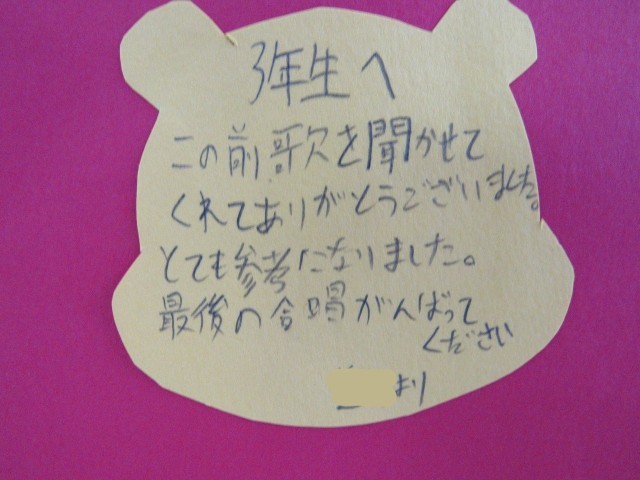 3年生へ
この前歌を聞かせて
くれてありがとうございました。
とても参考になりました。
最後の合唱がんばって
ください
より